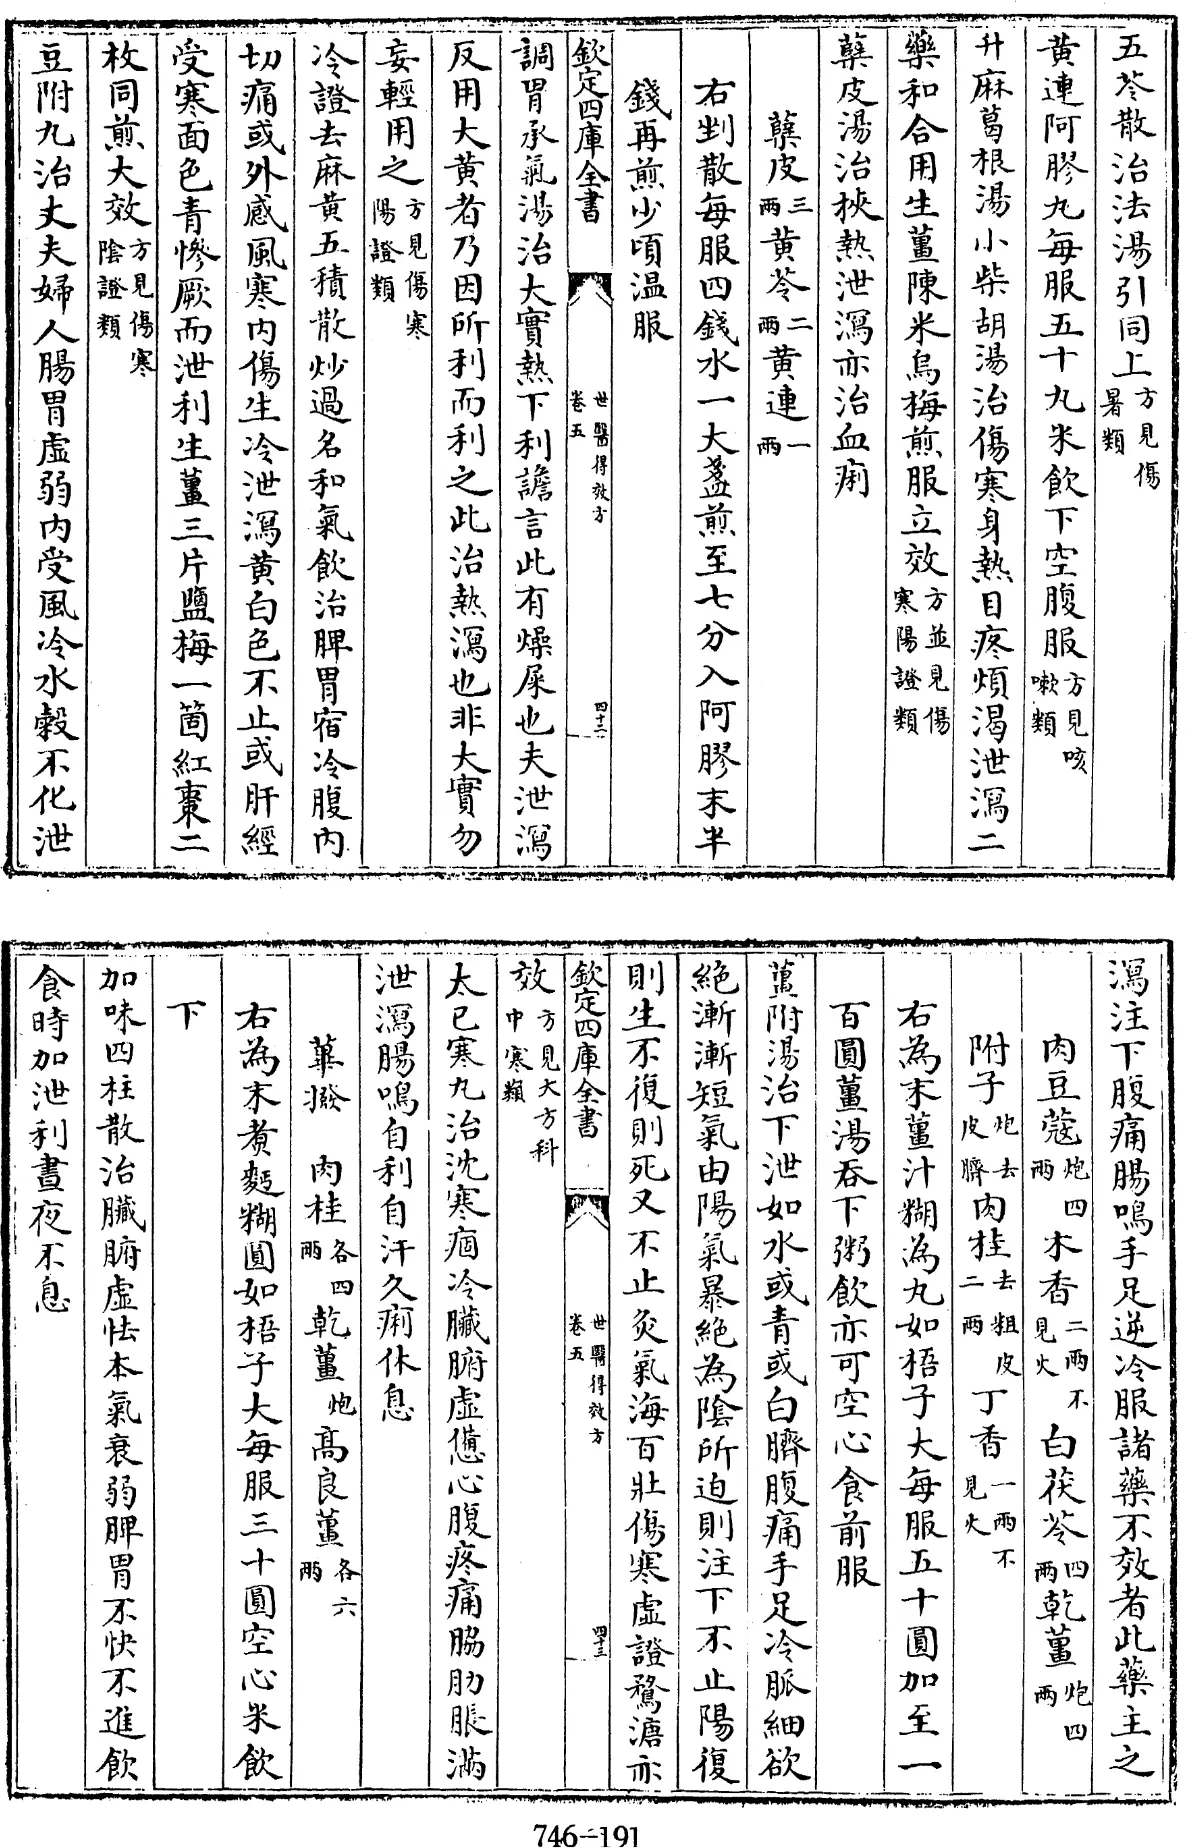 五苓散治法湯引同上方見傷暑類
黄連阿膠丸每服五十丸米飲下空腹服方見咳嗽類
升麻葛根湯小柴胡湯治傷寒身熱目疼煩渴泄瀉二
藥和合用生薑陳米烏梅煎服立效方並見傷寒陽證類
蘖皮湯治挾熱泄瀉亦治血痢
蘖皮三兩黄芩二兩黄連一兩
右剉散每服四錢水一大盞煎至七分入阿膠末半
錢再煎少頃温服
欽定四庫全書
世醫得效方
卷五
四十二
調胃承氣湯治大實熱下利譫言此有燥屎也夫泄瀉
反用大黄者乃因所利而利之此治熱瀉也非大實勿
妄輕用之方見傷寒陽證類
冷證去麻黄五積散炒過名和氣飲治脾胃宿冷腹内
切痛或外感風寒内傷生冷泄瀉黄白色不止或肝經
受寒面色青慘厥而泄利生薑三片鹽梅一箇紅棗二
枚同煎大效方見傷寒陰證類
豆附丸治丈夫婦人腸胃虚弱内受風冷水穀不化泄
瀉注下腹痛腸鳴手足逆冷服諸藥不效者此藥主之
肉豆蔻炮四兩木香二兩不見火白茯苓四兩乾薑炮四兩
附子炮去皮臍肉桂去粗皮二兩丁香一兩不見火
右為末薑汁糊為丸如梧子大每服五十圓加至一
百圓薑湯吞下粥飲亦可空心食前服
薑附湯治下泄如水或青或白臍腹痛手足冷脈細欲
絶漸漸短氣由陽氣暴絶為陰所迫則注下不止陽復
則生不復則死又不止灸氣海百壯傷寒虚證鶩溏亦
欽定四庫全書
世醫得效方
卷五
四十三
效方見大方科中寒類
太已寒丸治沈寒痼冷臟腑虚憊心腹疼痛脇肋脹滿
泄瀉腸鳴自利自汗久痢休息
蓽撥　肉桂各四兩乾薑炮高良薑各六兩
右為末煑麪糊圓如梧子大每服三十圓空心米飲
下
加味四柱散治臟腑虚怯本氣衰弱脾胃不快不進飲
食時加泄利晝夜不息
746-191